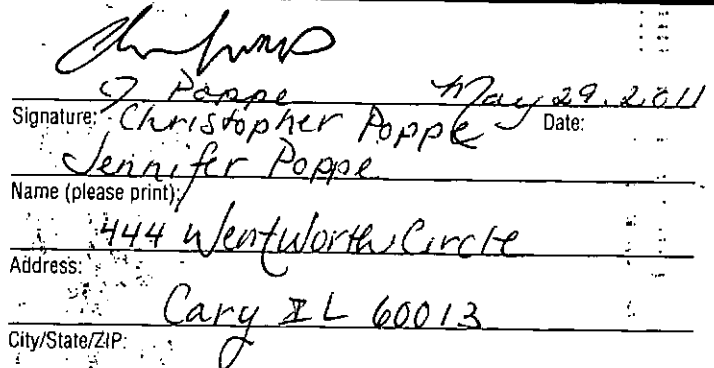 J Poppe May 29, 2011
Signature: Christopher Poppe Date:
Jennifer Poppe
Name (please print):
444 Wentworth Circle
Address:
Cary IL 60013
City/State/ZIP: